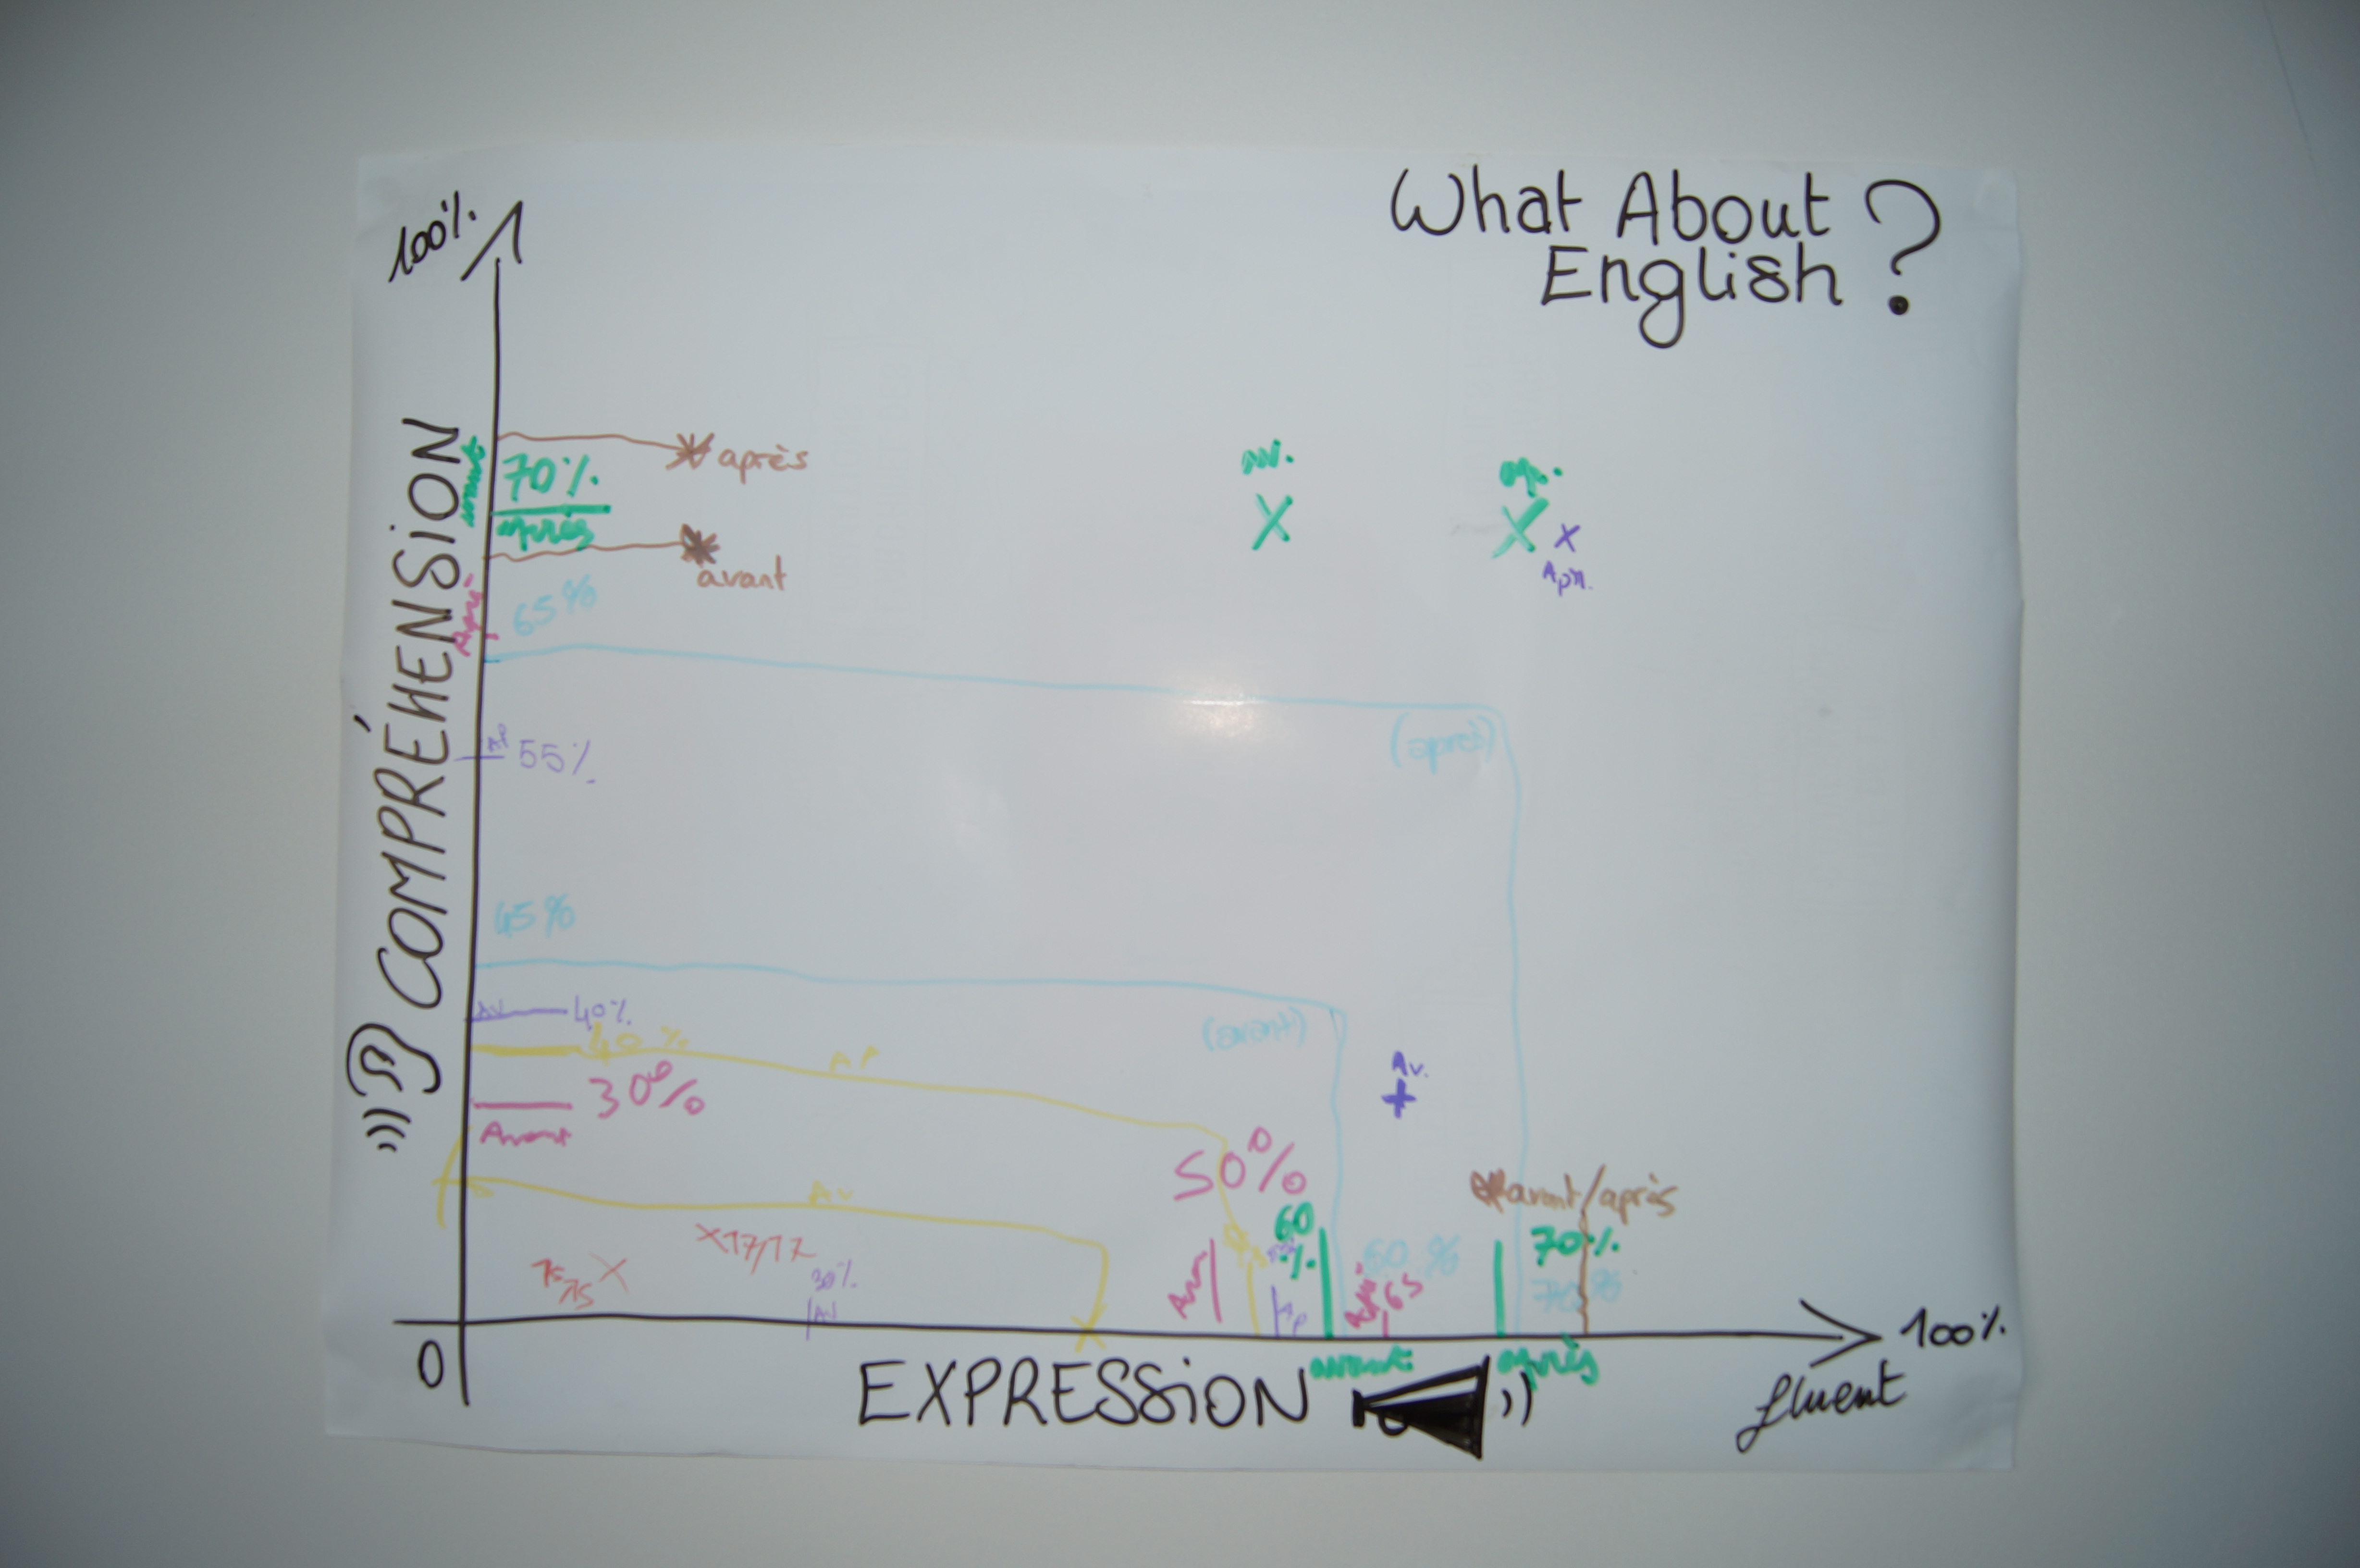 What About
English ?
100%
COMPRÉHENSION
après
70%
après
avant
65%
av.
ap.
Apr.
55%
(après)
45%
AV
40%
40%
AP
30%
Avant
(avant)
Av.
Av
50%
60
%
avant/après
70%
60%
70%
65
X17/17
30%
AV
AP
0
EXPRESSION
avant
après
100%
fluent